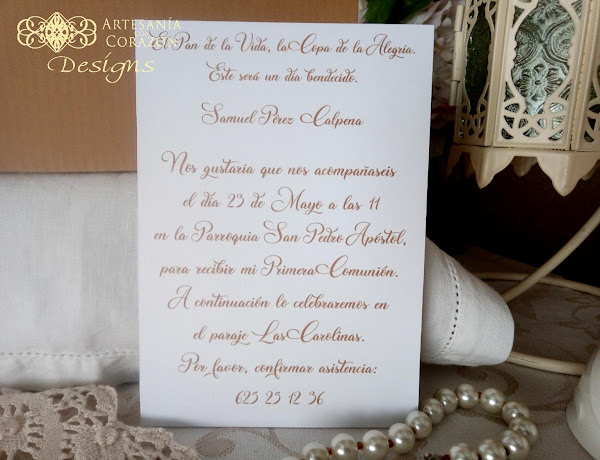 Artesanía
con
Corazón
Designs
El Pan de la Vida, la Copa de la Alegría.
Este será un día bendecido.
Samuel Pérez Calpena
Nos gustaría que nos acompañaseis
el día 23 de Mayo a las 11
en la Parroquia San Pedro Apóstol,
para recibir mi Primera Comunión.
A continuación lo celebraremos en
el paraje Las Carolinas.
Por favor, confirmar asistencia:
625 25 12 36